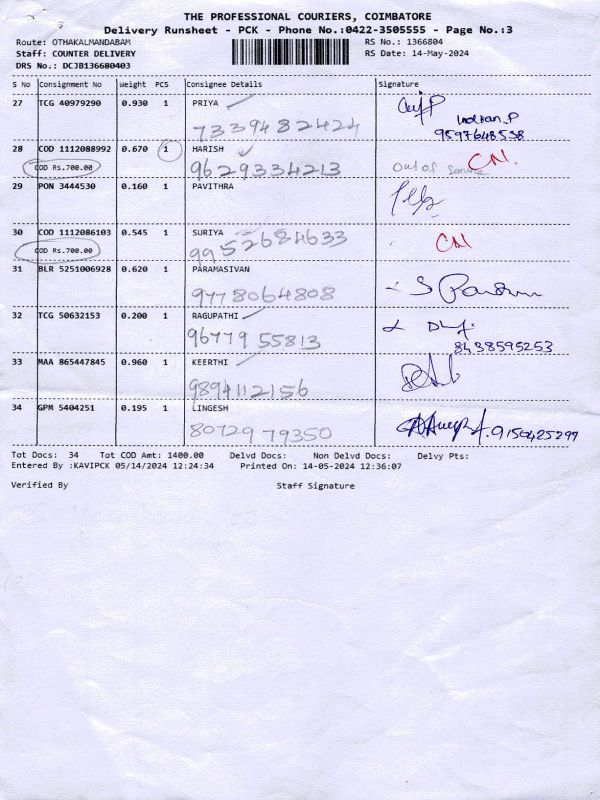 THE PROFESSIONAL COURIERS, COIMBATORE
Delivery Runsheet - PCK - Phone No.:0422-3505555 - Page No.:3
Route: OTHAKALMANDABAM RS No.: 1366804
Staff: COUNTER DELIVERY RS Date: 14-May-2024
DRS No.: DCJB136680403
S No Consignment No Weight PCS Consignee Details Signature
27 TCG 40979290 0.930 1 PRIYA
7339482424 9597648538
28 COD 1112088992 0.670 1 HARISH
COD Rs.700.00 9629334213 Out of Service CN.
29 PON 3444530 0.160 1 PAVITHRA
30 COD 1112086103 0.545 1 SURIYA
COD Rs.700.00 9952684633 CN
31 BLR 5251006928 0.620 1 PARAMASIVAN
9778064808
32 TCG 50632153 0.200 1 RAGUPATHI
96779 55813 8438595253
33 MAA 865447845 0.960 1 KEERTHI
9894112156
34 GPM 5404251 0.195 1 LINGESH
80729 79350 9150425299
Tot Docs: 34 Tot COD Amt: 1400.00 Delvd Docs: Non Delvd Docs: Delvy Pts:
Entered By :KAVIPCK 05/14/2024 12:24:34 Printed On: 14-05-2024 12:36:07
Verified By Staff Signature